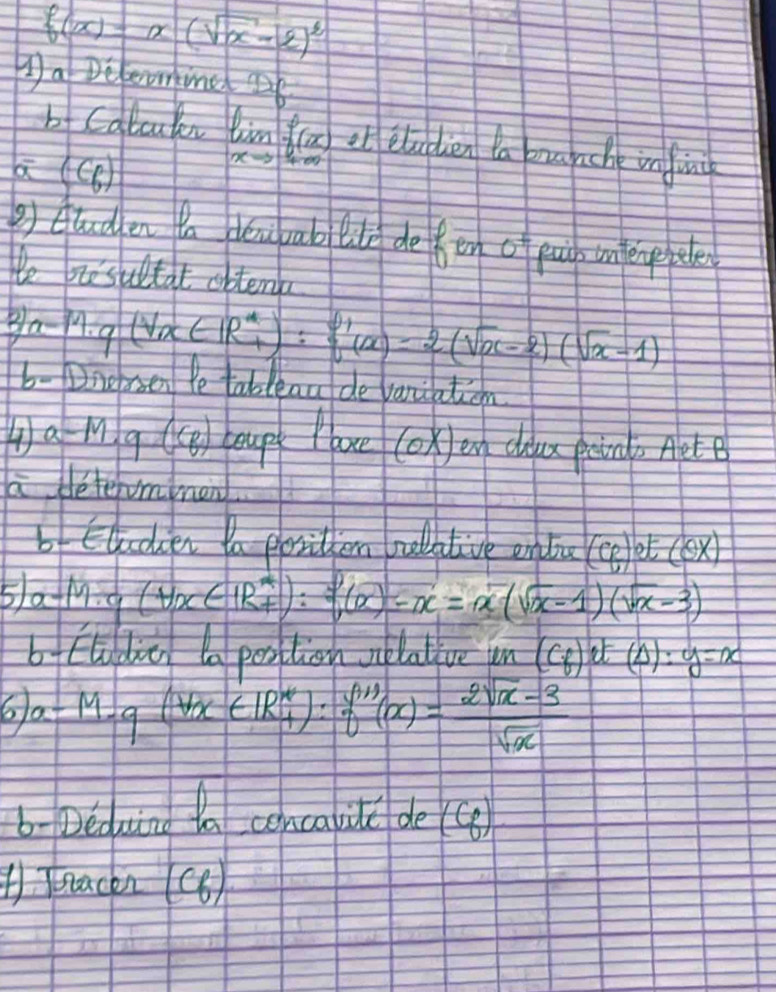 f(x) = x (√x - 2)²
1) a Déterminer Df
b- Calculer lim f(x) et étudier la branche infinie
x→+∞
à (Cf)
2) Étudier la dérivabilité de f en 0⁺ puis interpréter
le résultat obtenu
3) a- M.q (∀x ∈ IR*₊) : f'(x) = 2(√x - 2)(√x - 1)
b- Dresser le tableau de variation
4) a- M.q (Cf) coupe l'axe (OX) en deux points A et B
à déterminer
b- Étudier la position relative entre (Cf) et (OX)
5) a- M.q (∀x ∈ IR*₊) : f(x) - x = x(√x - 1)(√x - 3)
b- Étudier la position relative en (Cf) et (Δ) : y = x
6) a- M.q (∀x ∈ IR*₊) : f''(x) = (2√x - 3)/√x
b- Déduire la concavité de (Cf)
7) Tracer (Cf)